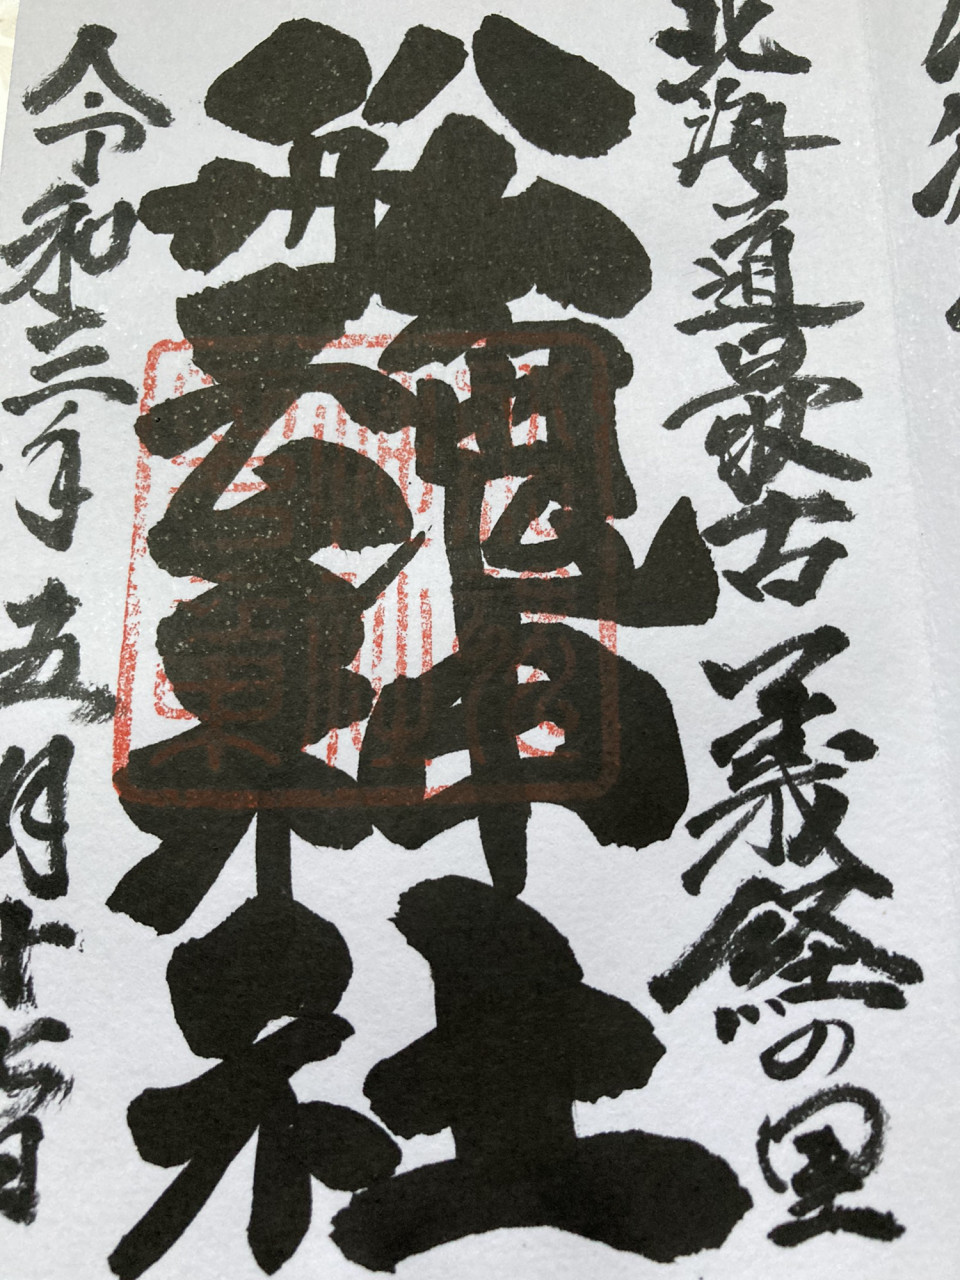 北海道最古 義経の里
舩魂神社
令和三年 五月十日